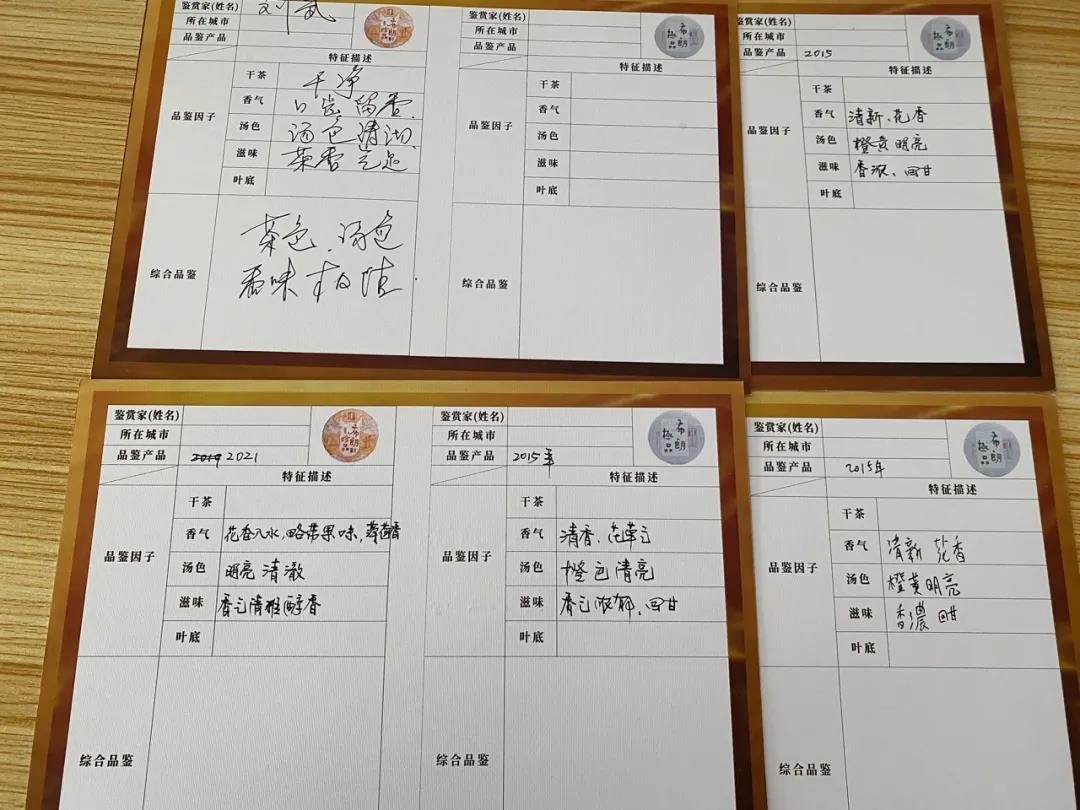 鉴赏家(姓名) 刘武
所在城市
品鉴产品
特征描述
品鉴因子
干茶 干净
香气 口齿留香.
汤色 汤色清沏.
滋味 茶香气足
叶底
综合品鉴
茶色.汤色
香味
鉴赏家(姓名)
所在城市
品鉴产品
希朗
极品
特征描述
品鉴因子
干茶
香气
汤色
滋味
叶底
综合品鉴
鉴赏家(姓名)
所在城市
品鉴产品 2015
希朗
极品
特征描述
品鉴因子
干茶
香气 清新、花香
汤色 橙黄明亮
滋味 香浓、回甘
叶底
综合品鉴
鉴赏家(姓名)
所在城市
品鉴产品 2021
希朗
珍品
特征描述
品鉴因子
干茶
香气 花香入水,略带果味,
汤色 明亮 清澈
滋味 香气清雅醇香
叶底
综合品鉴
鉴赏家(姓名)
所在城市
品鉴产品 2015年
希朗
极品
特征描述
品鉴因子
干茶
香气 清香、花草气
汤色 橙色清亮
滋味 香气浓郁、回甘
叶底
综合品鉴
鉴赏家(姓名)
所在城市
品鉴产品 2015年
希朗
极品
特征描述
品鉴因子
干茶
香气 清新 花香
汤色 橙黄明亮
滋味 香濃 回甘
叶底
综合品鉴